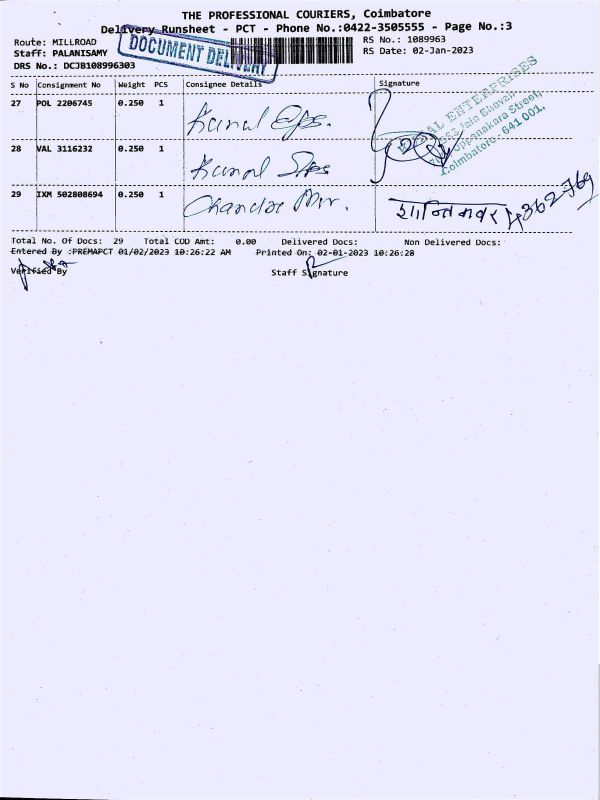 THE PROFESSIONAL COURIERS, Coimbatore
Delivery Runsheet - PCT - Phone No.:0422-3505555 - Page No.:3
Route: MILLROAD
Staff: PALANISAMY
DRS No.: DCJB108996303
DOCUMENT DELIVERY
RS No.: 1089963
RS Date: 02-Jan-2023
S No Consignment No Weight PCS Consignee Details Signature
27 POL 2206745 0.250 1
28 VAL 3116232 0.250 1
29 IXM 502808694 0.250 1
ENTERPRISES
Uppanakara Street,
Coimbatore - 641 001.
Total No. Of Docs: 29 Total COD Amt: 0.00 Delivered Docs: Non Delivered Docs:
Entered By :PREMAPCT 01/02/2023 10:26:22 AM Printed On: 02-01-2023 10:26:28
Verified By Staff Signature